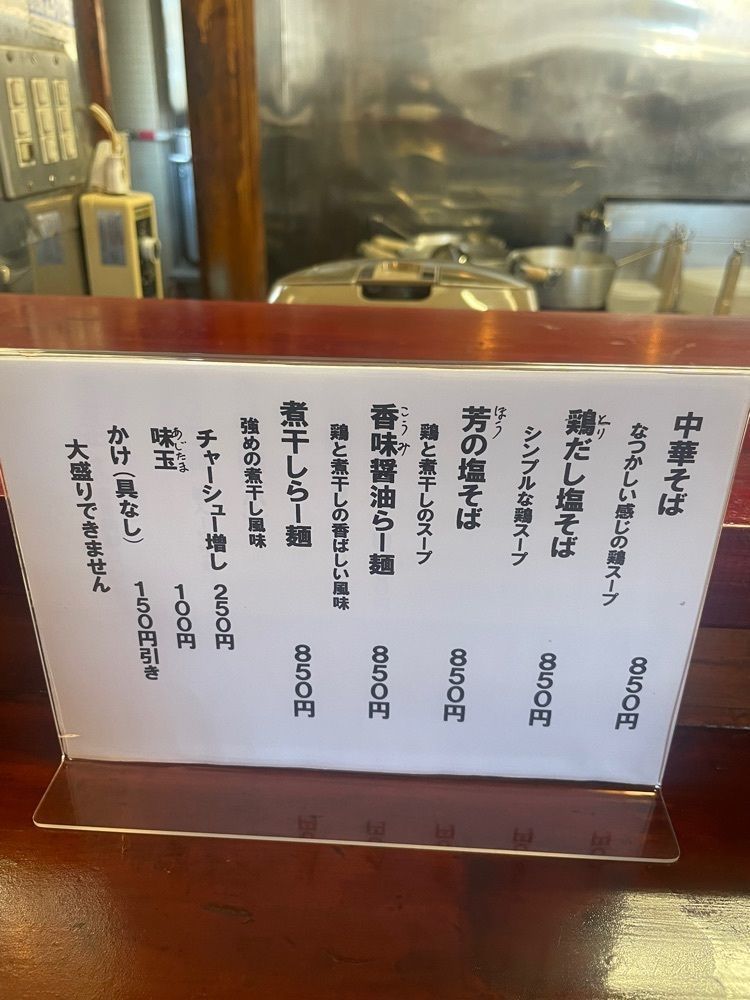 中華そば
なつかしい感じの鶏スープ
850円
鶏だし塩そば
とり
シンプルな鶏スープ
850円
芳の塩そば
ほう
鶏と煮干しのスープ
850円
香味醤油らー麺
こうみ
鶏と煮干しの香ばしい風味
850円
煮干しらー麺
強めの煮干し風味
850円
チャーシュー増し 250円
味玉 100円
あじたま
かけ(具なし) 150円引き
大盛りできません